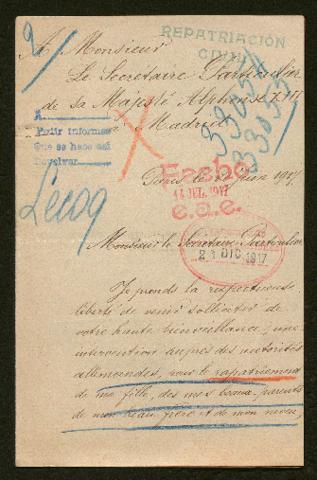 2/
REPATRIACIÓN
CIVIL
A Monsieur
Le Secrétaire Particulier
de Sa Majesté Alphonse XIII
à Madrid
A
Pedir informes
Que se hace así
Devolver
Lecoq
Paris le juin 1917
Fecho
14 JUL. 1917
23 DIC 1917
Monsieur le Secrétaire Particulier
Je prends la respectueuse
liberté de venir solliciter de
votre haute bienveillance, une
intervention auprès des autorités
allemandes, pour le rapatriement
de ma fille, des mes beaux-parents
de mon beau-frère et de mon neveu,